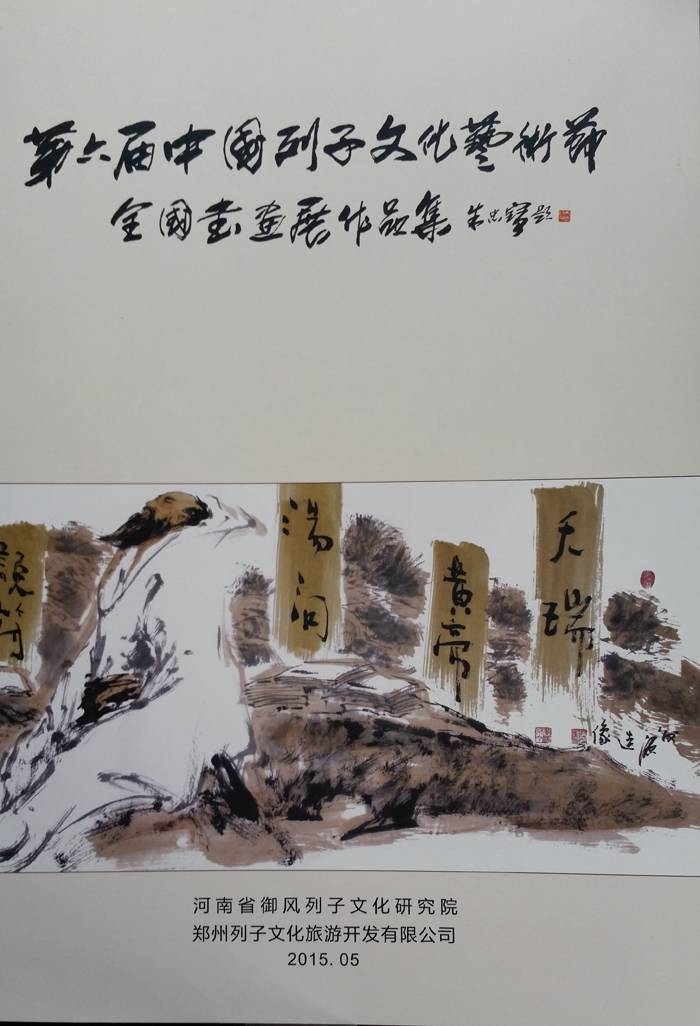 第六届中国列子文化藝術節
全國書畫展作品集 朱忠寶題
天瑞
黄帝
湯问
說符
造像
河南省御风列子文化研究院
郑州列子文化旅游开发有限公司
2015.05